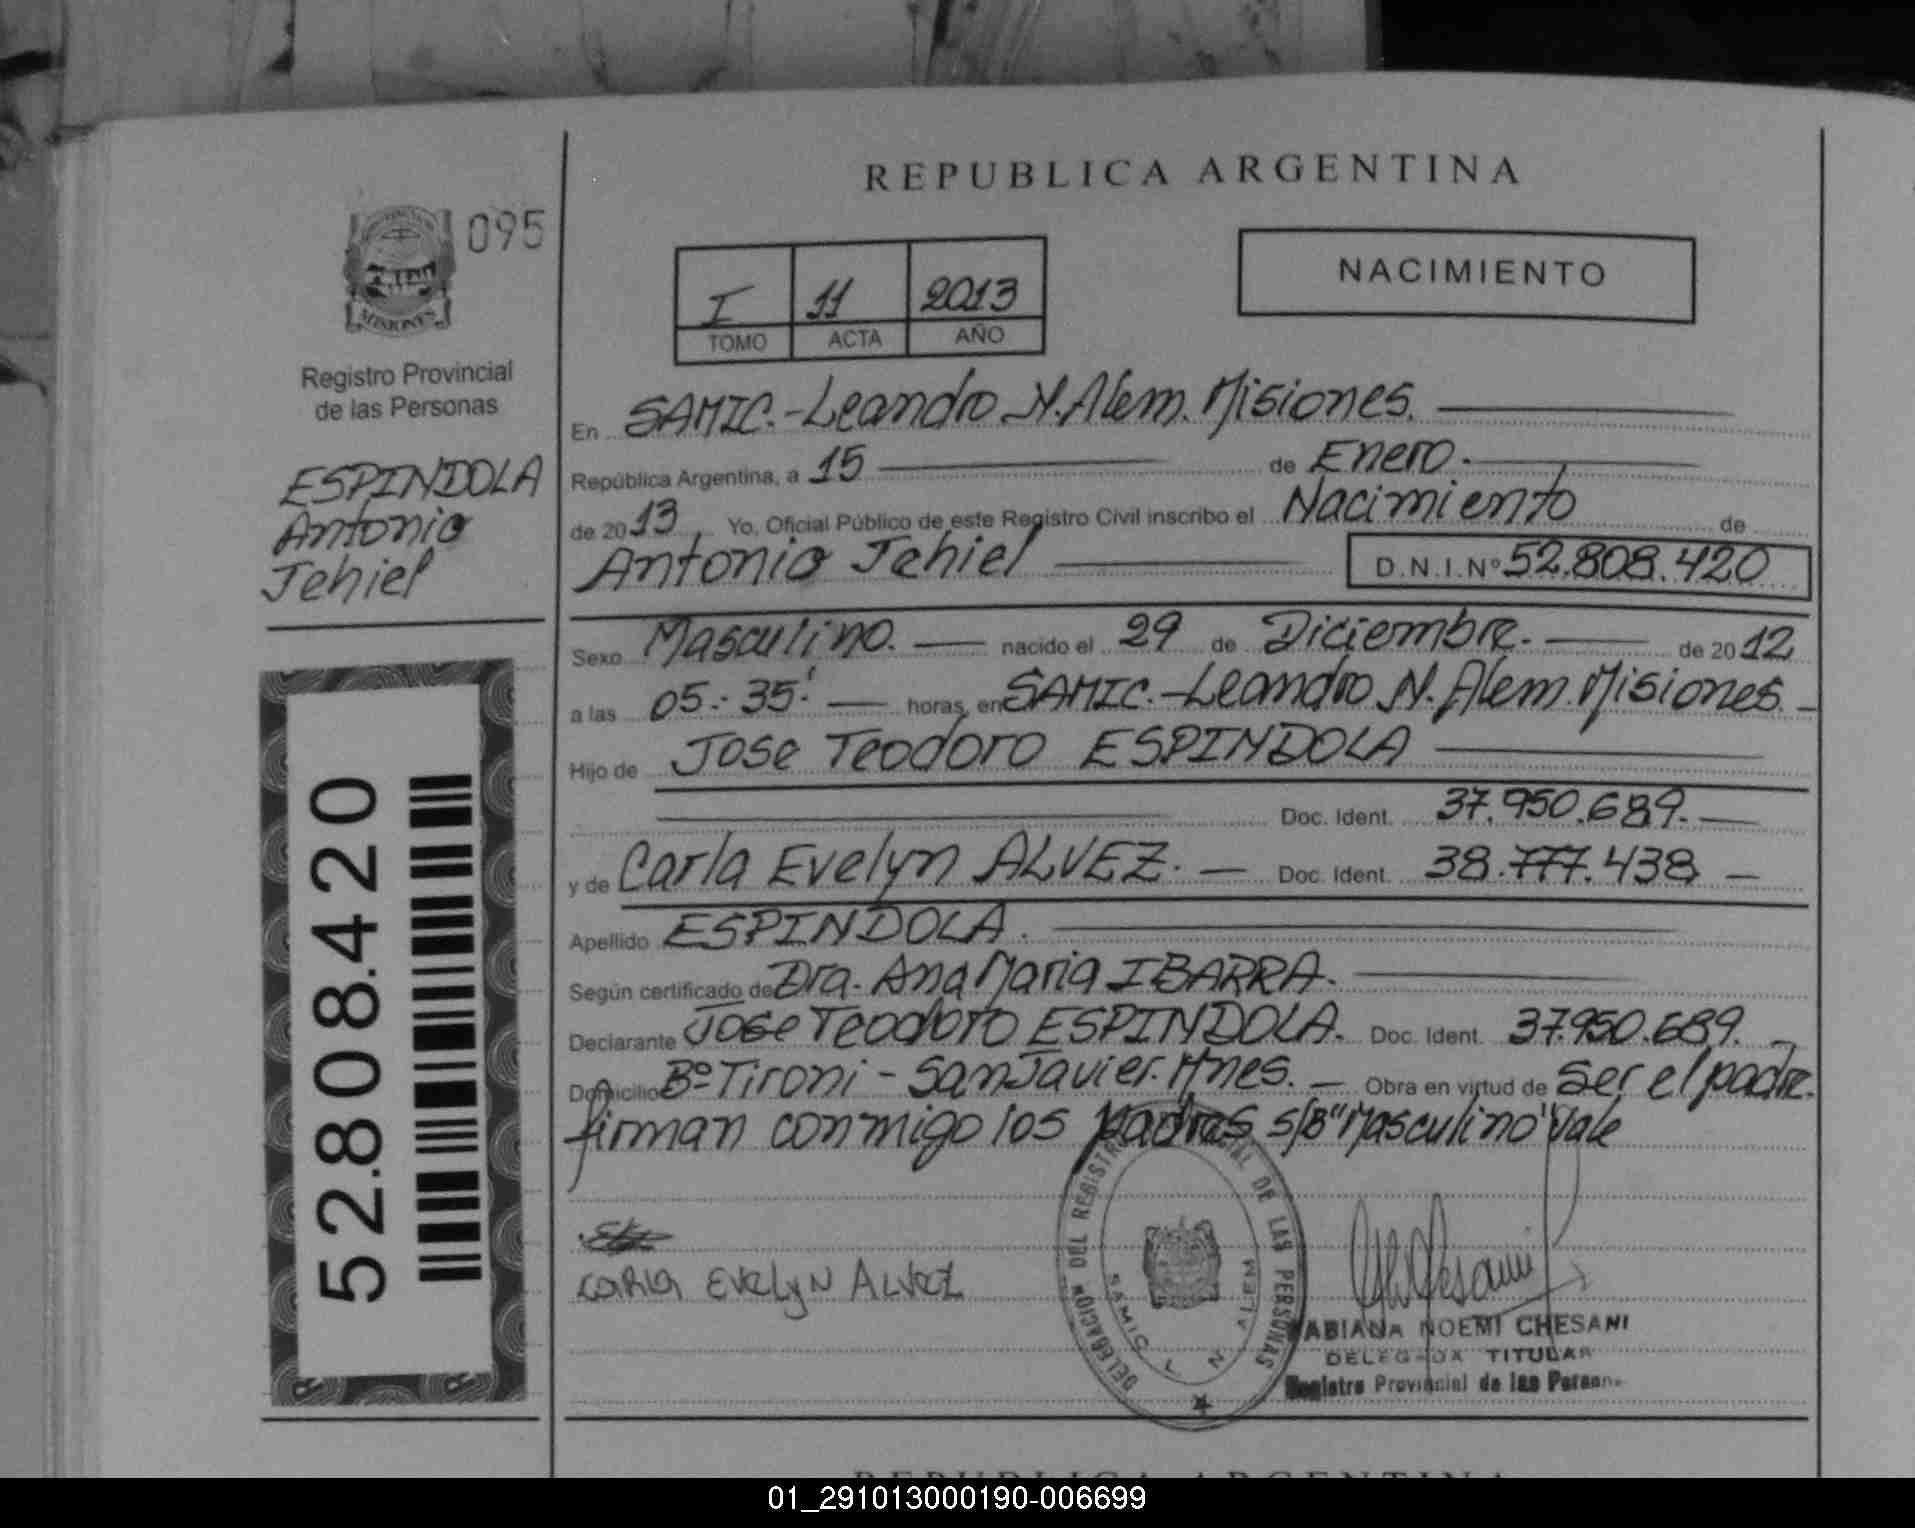 REPUBLICA ARGENTINA
095
NACIMIENTO
I 11 2013
TOMO ACTA AÑO
MISIONES
Registro Provincial
de las Personas
ESPINDOLA
Antonio
Jehiel
En SAMIC.-Leandro N. Alem. Misiones.
República Argentina, a 15 de Enero.
de 2013 Yo, Oficial Público de este Registro Civil inscribo el Nacimiento de
Antonio Jehiel D.N.I.Nº 52.808.420
Sexo Masculino. nacido el 29 de Diciembre. de 2012
a las 05:35' horas, en SAMIC.-Leandro N. Alem. Misiones.
Hijo de Jose Teodoro ESPINDOLA
Doc. Ident. 37.950.689.
y de Carla Evelyn ALVEZ. Doc. Ident. 38.777.438
Apellido ESPINDOLA.
Según certificado de Dra. Ana Maria IBARRA.
Declarante Jose Teodoro ESPINDOLA. Doc. Ident. 37.950.689.
Domicilio Bº Tironi - San Javier. Mnes. Obra en virtud de ser el padre.
firman conmigo los padres s/B "Masculino" Vale
52.808.420
CARLA EVELYN ALVEZ
DELEGACION DEL REGISTRO PROVINCIAL DE LAS PERSONAS
SAMIC L N ALEM
FABIANA NOEMI CHESANI
DELEGADA TITULAR
Registro Provincial de las Personas
REPUBLICA ARGENTINA
01_291013000190-006699